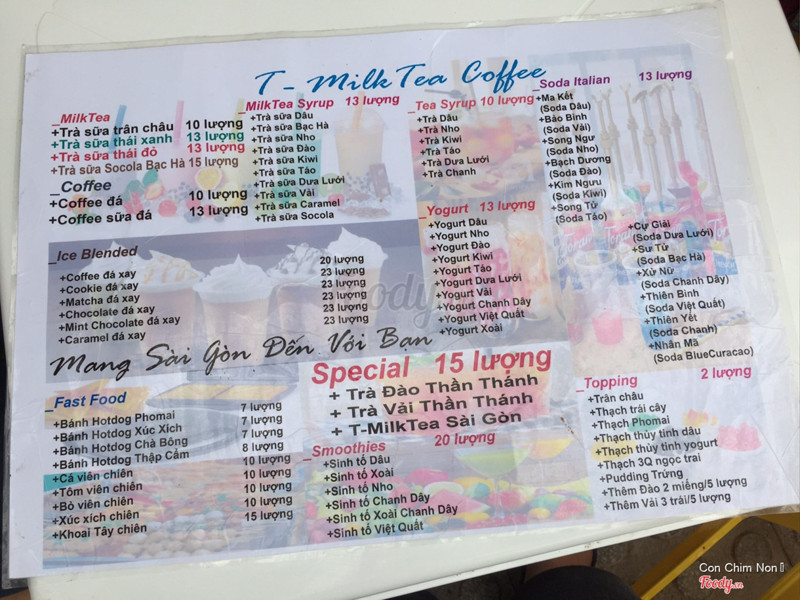 T - MilkTea Coffee
_MilkTea
+Trà sữa trân châu 10 lượng
+Trà sữa thái xanh 13 lượng
+Trà sữa thái đỏ 13 lượng
+Trà sữa Socola Bạc Hà 15 lượng
_Coffee
+Coffee đá 10 lượng
+Coffee sữa đá 13 lượng
_MilkTea Syrup 13 lượng
+Trà sữa Dâu
+Trà sữa Bạc Hà
+Trà sữa Nho
+Trà sữa Đào
+Trà sữa Kiwi
+Trà sữa Táo
+Trà sữa Dưa Lưới
+Trà sữa Vải
+Trà sữa Caramel
+Trà sữa Socola
_Tea Syrup 10 lượng
+Trà Dâu
+Trà Nho
+Trà Kiwi
+Trà Táo
+Trà Dưa Lưới
+Trà Chanh
_Yogurt 13 lượng
+Yogurt Dâu
+Yogurt Nho
+Yogurt Đào
+Yogurt Kiwi
+Yogurt Táo
+Yogurt Dưa Lưới
+Yogurt Vải
+Yogurt Chanh Dây
+Yogurt Việt Quất
+Yogurt Xoài
_Soda Italian 13 lượng
+Ma Kết
(Soda Dâu)
+Bảo Bình
(Soda Vải)
+Song Ngư
(Soda Nho)
+Bạch Dương
(Soda Đào)
+Kim Ngưu
(Soda Kiwi)
+Song Tử
(Soda Táo)
+Cự Giải
(Soda Dưa Lưới)
+Sư Tử
(Soda Bạc Hà)
+Xử Nữ
(Soda Chanh Dây)
+Thiên Bình
(Soda Việt Quất)
+Thiên Yết
(Soda Chanh)
+Nhân Mã
(Soda BlueCuracao)
_Ice Blended
+Coffee đá xay 20 lượng
+Cookie đá xay 23 lượng
+Matcha đá xay 23 lượng
+Chocolate đá xay 23 lượng
+Mint Chocolate đá xay 23 lượng
+Caramel đá xay 23 lượng
Mang Sài Gòn Đến Với Bạn
Special 15 lượng
+ Trà Đào Thần Thánh
+ Trà Vải Thần Thánh
+ T-MilkTea Sài Gòn
_Fast Food
+Bánh Hotdog Phomai 7 lượng
+Bánh Hotdog Xúc Xích 7 lượng
+Bánh Hotdog Chà Bông 7 lượng
+Bánh Hotdog Thập Cẩm 8 lượng
+Cá viên chiên 10 lượng
+Tôm viên chiên 10 lượng
+Bò viên chiên 10 lượng
+Xúc xích chiên 10 lượng
+Khoai Tây chiên 15 lượng
_Smoothies 20 lượng
+Sinh tố Dâu
+Sinh tố Xoài
+Sinh tố Nho
+Sinh tố Chanh Dây
+Sinh tố Xoài Chanh Dây
+Sinh tố Việt Quất
_Topping 2 lượng
+Trân châu
+Thạch trái cây
+Thạch Phomai
+Thạch thủy tinh dâu
+Thạch thủy tinh yogurt
+Thạch 3Q ngọc trai
+Pudding Trứng
+Thêm Đào 2 miếng/5 lượng
+Thêm Vải 3 trái/5 lượng
Con Chim Non
Foody.vn